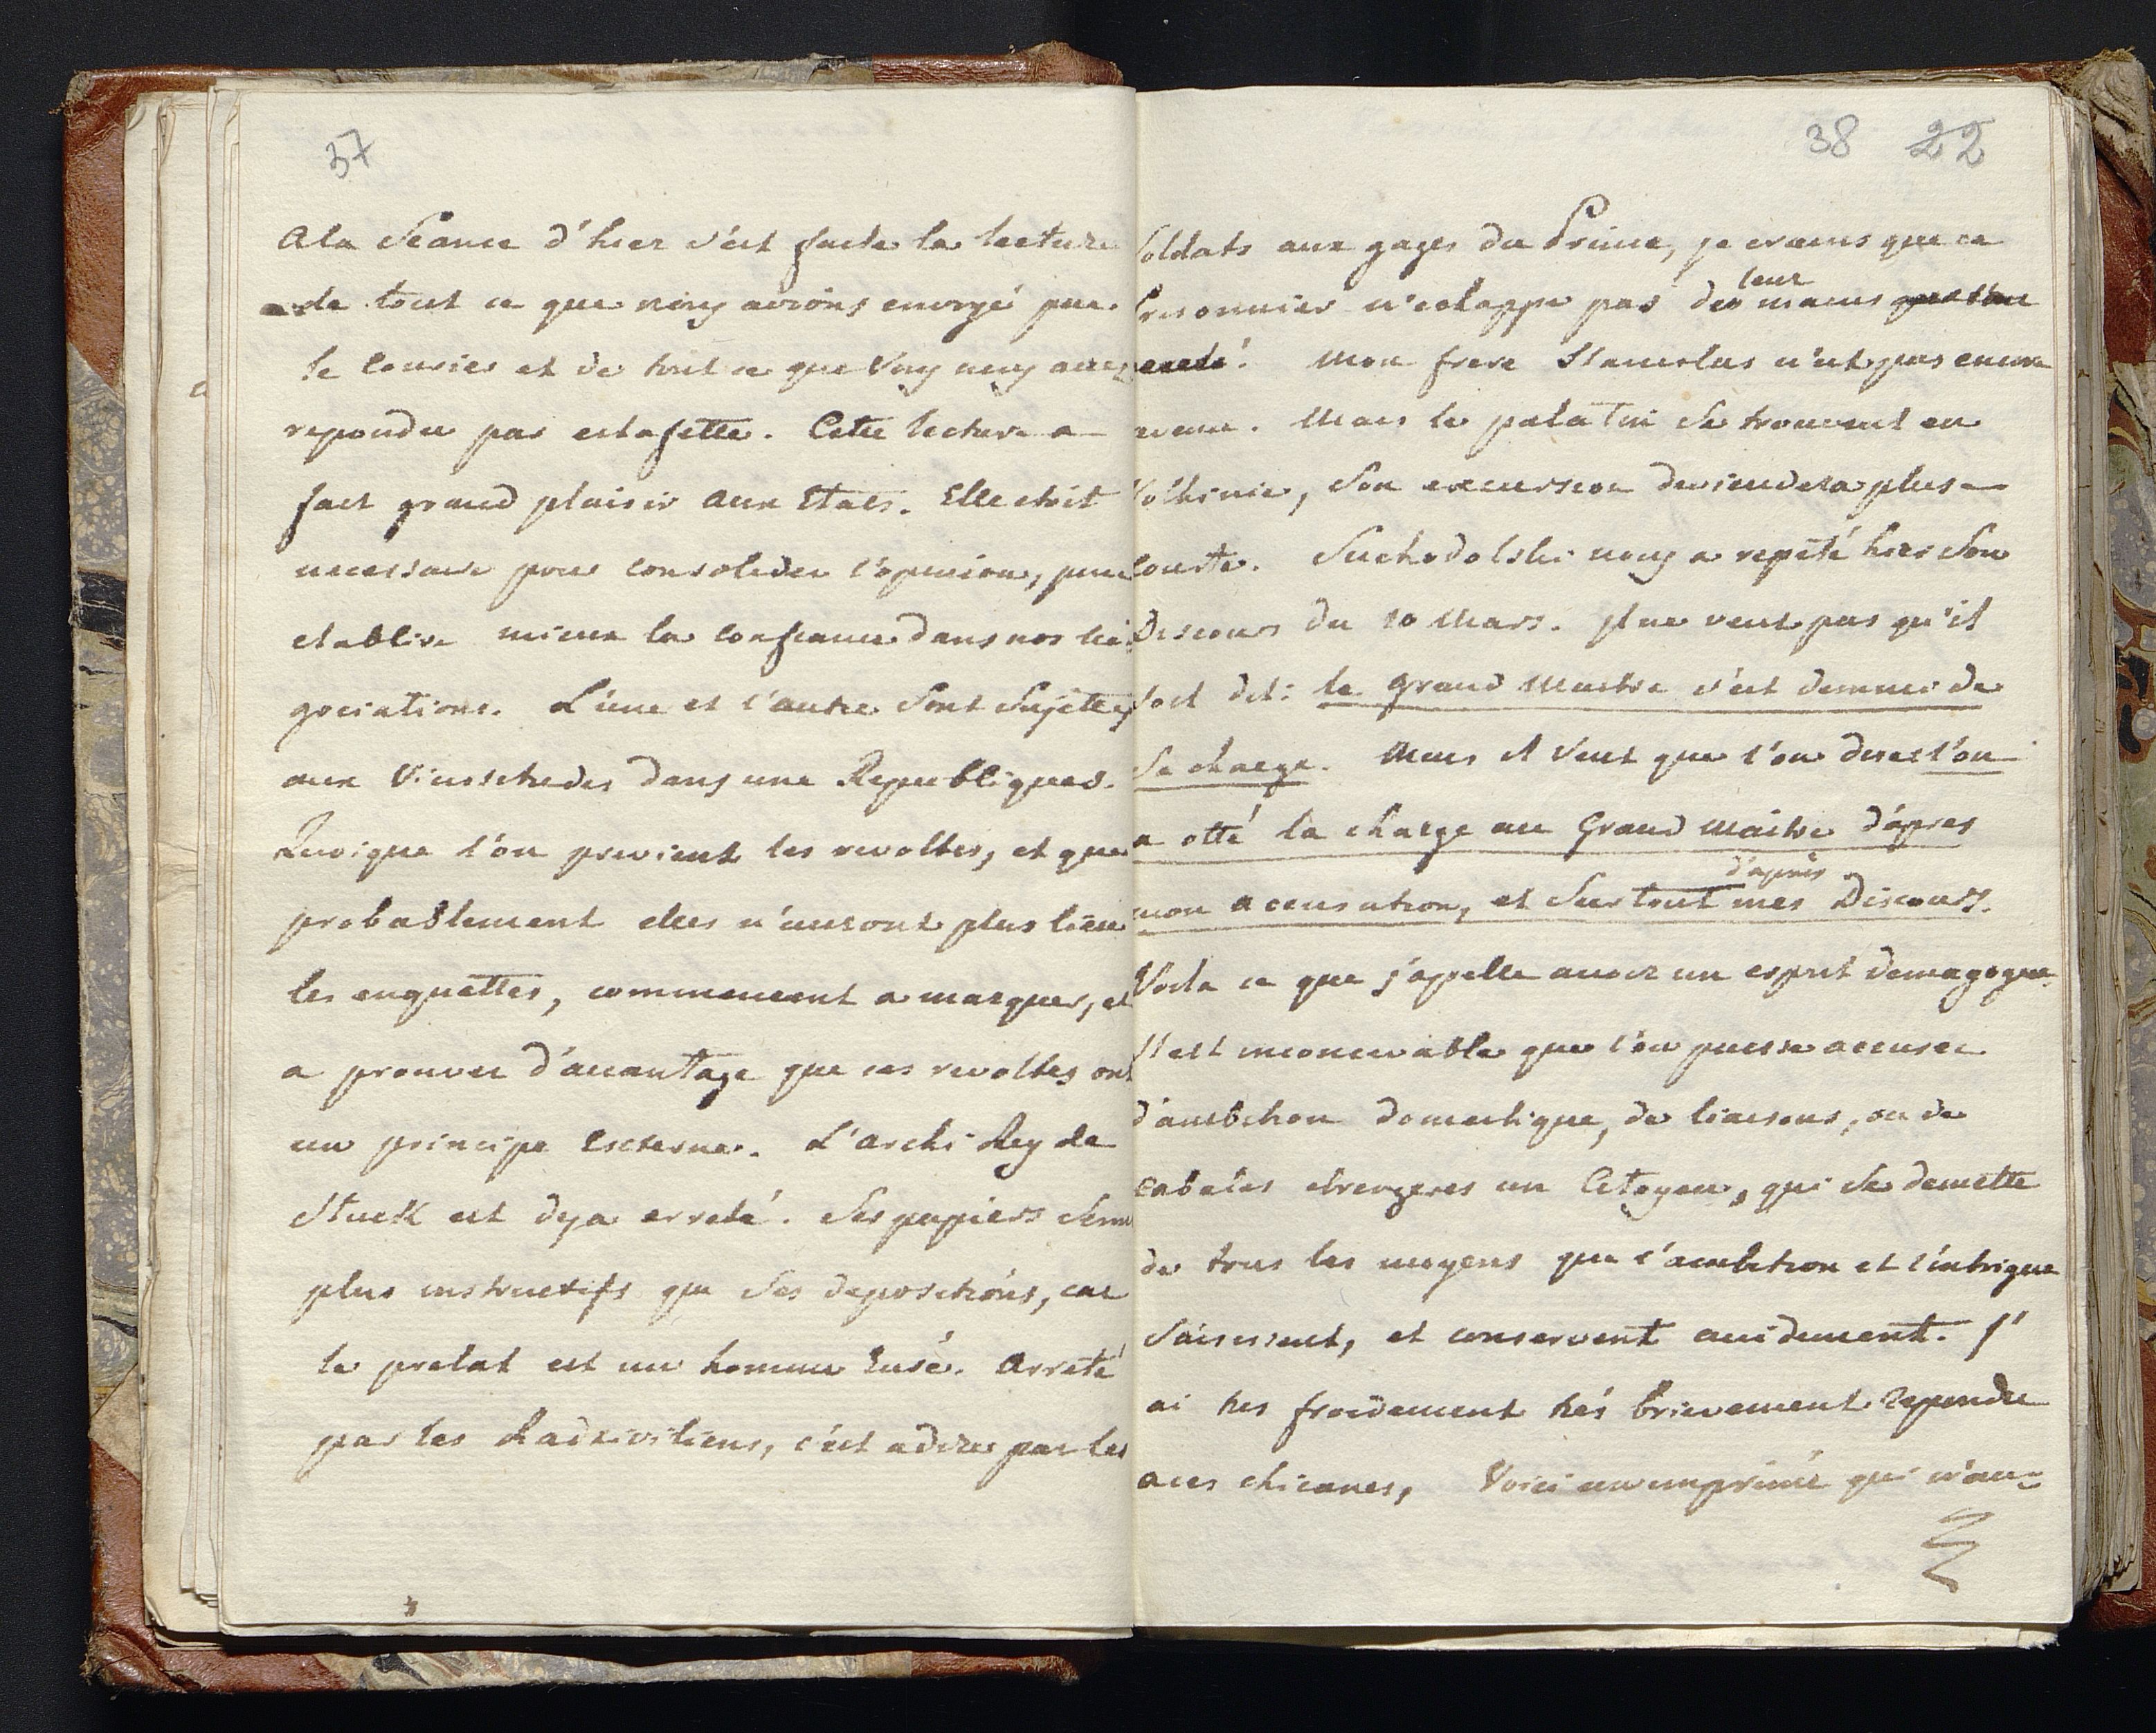 37
A la Séance d'hier s'est faite la lecture
de tout ce que nous avions envoyé par
le Courier et de tout ce que Vous nous avez
repondu par estafette. Cette lecture a
fait grand plaisir aux Etats. Elle etoit
necessaire pour consolider l'opinion, pour
etablire mieux la confiance dans nos né-
gociations. L'une et l'autre sont sujettes
aux Vicissitudes dans une Republique.
Quoique l'on previent les revoltes, et que
probablement elles n'auront plus lieu
les enquettes, commencent a marquer, et
a prouver d'avantage que ces revoltes ont
un principe Externe. L'archi Rey de
Stuck est deja arreté. Ses papiers seront
plus instructifs que ses depositions, car
le prelat est un homme rusé. Arreté
par les Radziviliens, c'est a dire par les
38 22
Soldats aux gages du Prince, je crains que ce
Prisonnier n'echappe pas de leur mains
Mon frere Stanislas n'est pas encore
venu. Mais le palatin se trouvant en
Volhinie, Son excursion deviendera plus
courte. Suchodolski nous a repeté hier Son
Discours du 10 Mars. Il ne veut pas qu'il
soit dit: le Grand Maitre s'est demis de
Sa charge. Mais il Veut que l'on dise l'on
a otté la charge au Grand Maitre d'apres
mon accusation, et Surtout d'après mes Discours.
Voila ce que j'appelle avoir un esprit demagogue.
Il est inconcevable que l'on puisse accuser
d'ambition domestique, de liaisons, ou de
cabales etrangeres un Citoyen, qui Se demette
de tous les moyens que l'ambition et l'intrigue
Saisissent, et conservent avidement. J'
ai tres froidement trés brievement repondu
a ces chicanes, Voici un imprimé qui m'au-